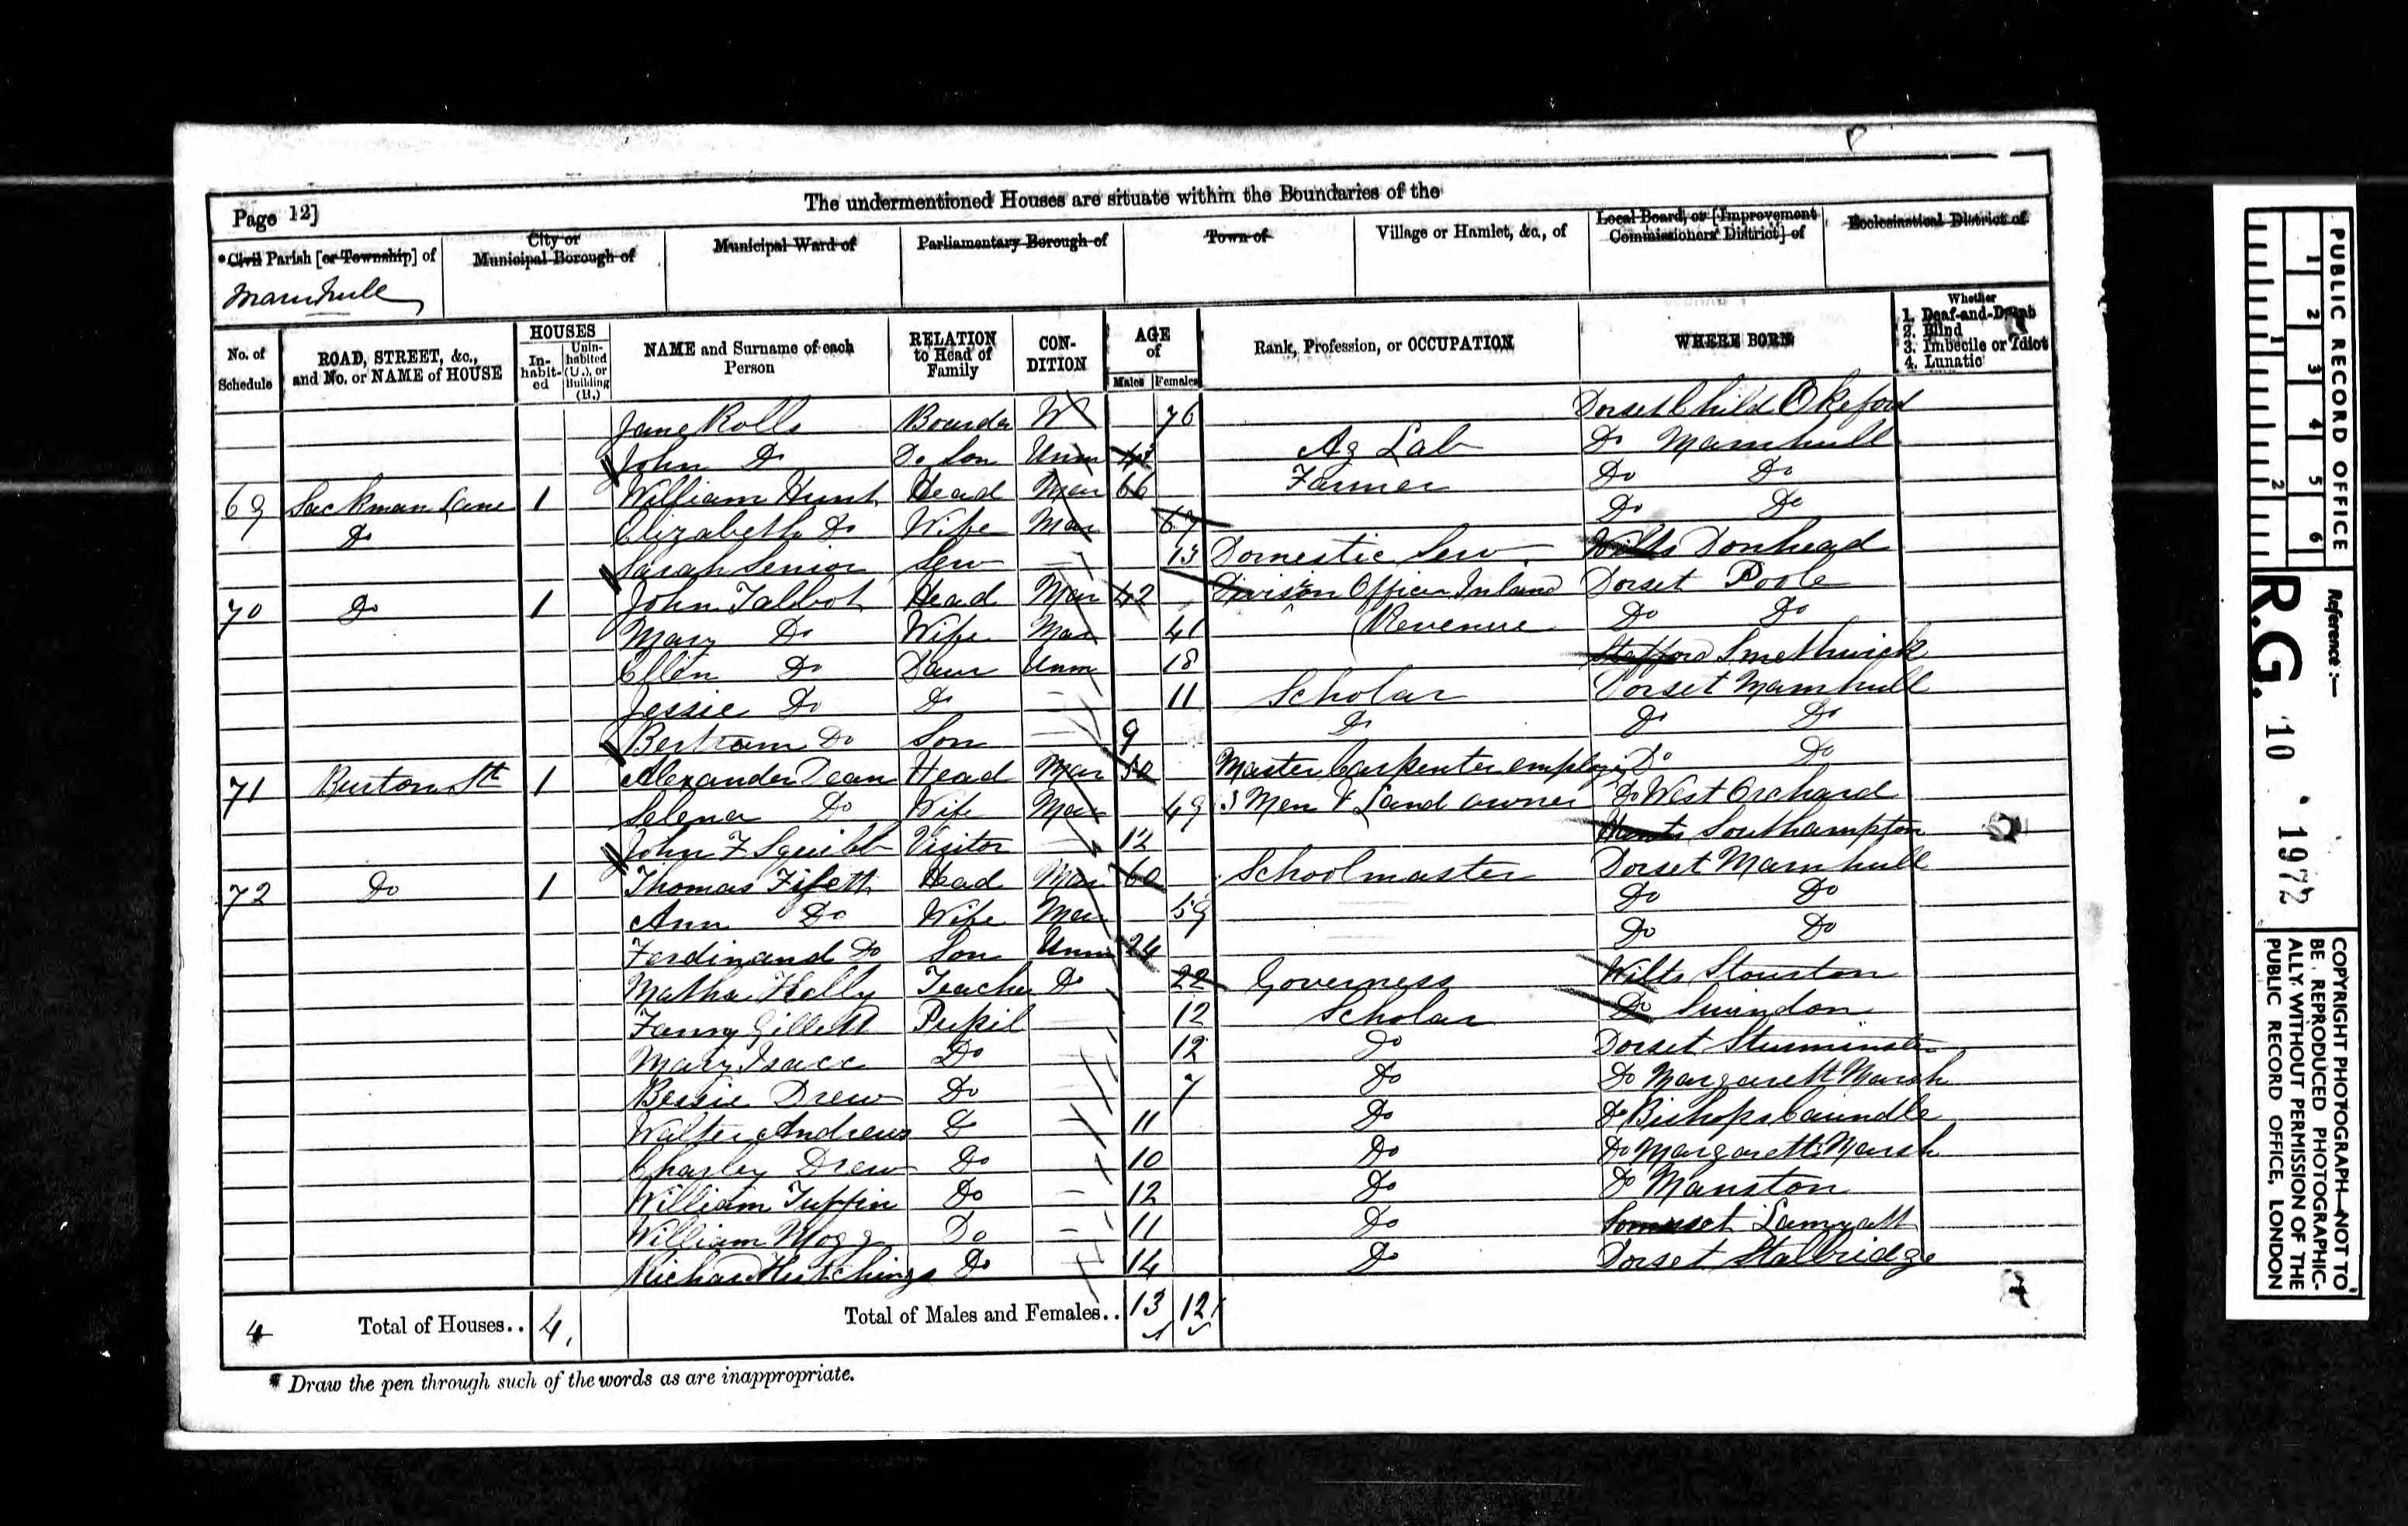 Page 12]
The undermentioned Houses are situate within the Boundaries of the
*Civil Parish [or Township] of
City or Municipal Borough of
Municipal Ward of
Parliamentary Borough of
Town of
Village or Hamlet, &c., of
Local Board, or [Improvement Commissioners' District] of
Ecclesiastical District of
Marnhull
No. of Schedule
ROAD, STREET, &c., and No. or NAME of HOUSE
HOUSES
In-habit-ed
Unin-habited (U.), or Building (B.)
NAME and Surname of each Person
RELATION to Head of Family
CON-DITION
AGE of
Males Females
Rank, Profession, or OCCUPATION
WHERE BORN
Whether
1. Deaf-and-Dumb
2. Blind
3. Imbecile or Idiot
4. Lunatic
Jane Rolls Boarder W 76 Dorset Child Okeford
John Do Do Son Unm Ag Lab Do Marnhull
69 Sackman Lane 1 William Hunt Head Mar 66 Farmer Do Do
Do Elizabeth Do Wife Mar 67 Do Do
Sarah Senior Serv 13 Domestic Serv Wilts Donhead
70 Do 1 John Talbot Head Mar 42 Division Officer Inland Dorset Poole
Mary Do Wife Mar 41 Revenue Do Do
Ellen Do Daur Unm 18 Stafford Smethwick
Jessie Do Do 11 Scholar Dorset Marnhull
Bertram Do Son 9 Do Do Do
71 Burton St 1 Alexander Dean Head Mar 50 Master Carpenter employing Do Do
Selena Do Wife Mar 49 3 Men & Land owner Do West Orchard
John F Squibb Visitor 12 Hants Southampton
72 Do 1 Thomas Fifett Head Mar 60 Schoolmaster Dorset Marnhull
Ann Do Wife Mar 59 Do Do
Ferdinand Do Son Unm 24 Do Do
Matha Kelly Teacher Do 22 Governess Wilts Stourton
Fanny Gillett Pupil 12 Scholar Do Swindon
Mary Isacc Do 12 Do Dorset Sturminster
Bessie Drew Do 7 Do Do Margarett Marsh
Walter Andrews Do 11 Do Do Bishops Caundle
Charley Drew Do 10 Do Do Margarett Marsh
William Tuffin Do 12 Do Do Manston
William Mogg Do 11 Do Somerset Lamyatt
Richard Hutchings Do 14 Do Dorset Stalbridge
4 Total of Houses.. 4 Total of Males and Females.. 13 12
* Draw the pen through such of the words as are inappropriate.
PUBLIC RECORD OFFICE
1 2 3 4 5 6
1 2
Reference :—
R.G. 10 1972
COPYRIGHT PHOTOGRAPH—NOT TO
BE REPRODUCED PHOTOGRAPHIC-
ALLY WITHOUT PERMISSION OF THE
PUBLIC RECORD OFFICE, LONDON